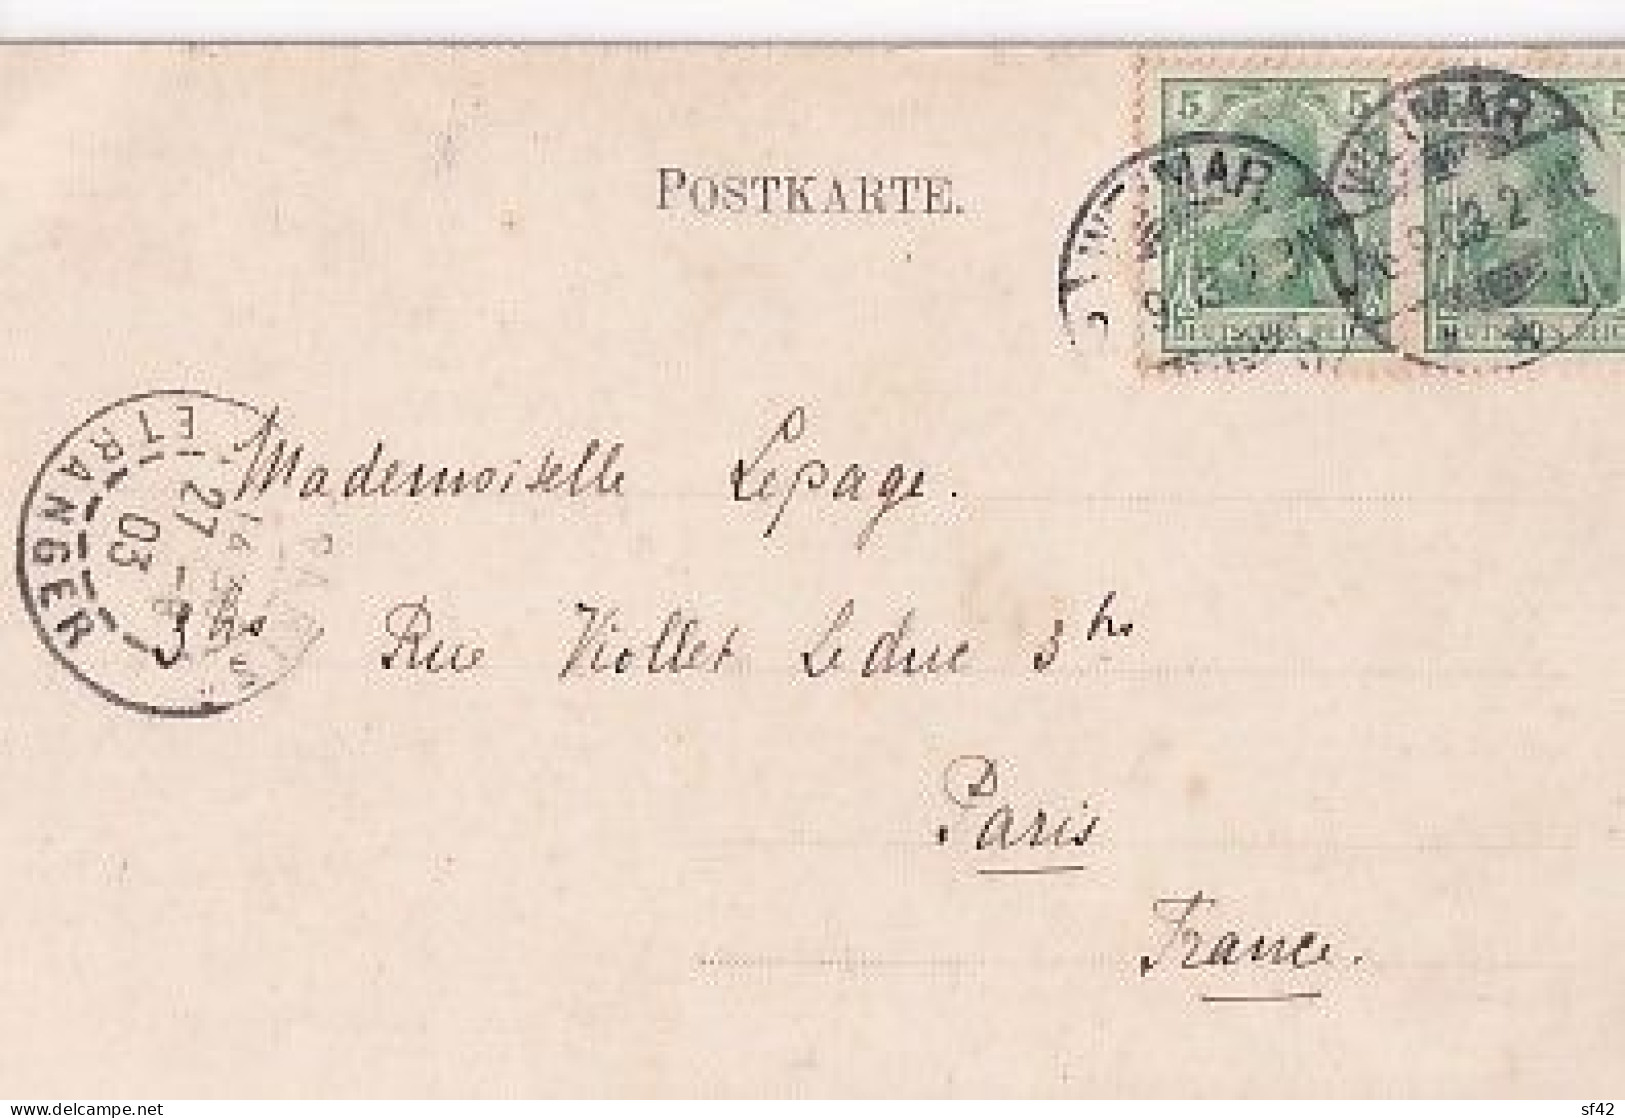 POSTKARTE.
5 5 5
WEIMAR
WEIMAR
DEUTSCHES REICH
DEUTSCHES REICH
ETRANGER
27
03
Mademoiselle Lepage.
3 bis Rue Viollet Leduc 3 bis
Paris
France.
delcampe.net
sf42